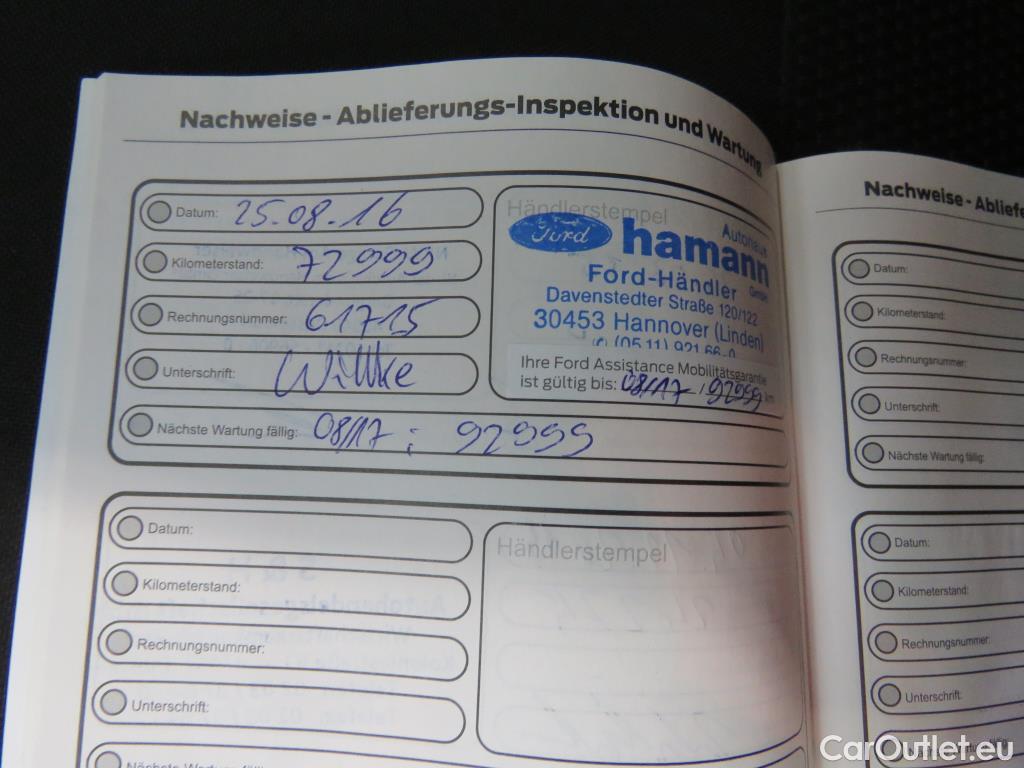 Nachweise - Ablieferungs-Inspektion und Wartung
Datum: 25.08.16
Kilometerstand: 72999
Rechnungsnummer: 61715
Unterschrift: Willke
Nächste Wartung fällig: 08/17 ; 92999
Händlerstempel
Ford
Autohaus
hamann
GmbH
Ford-Händler
Davenstedter Straße 120/122
30453 Hannover (Linden)
(05 11) 921 66-0
Ihre Ford Assistance Mobilitätsgarantie
ist gültig bis: 08/17 / 92999 km
Datum:
Kilometerstand:
Rechnungsnummer:
Unterschrift:
Nächste Wartung fällig:
Händlerstempel
Nachweise - Abliefe
Datum:
Kilometerstand:
Rechnungsnummer:
Unterschrift:
Nächste Wartung fällig:
Datum:
Kilometerstand:
Rechnungsnummer:
Unterschrift:
CarOutlet.eu